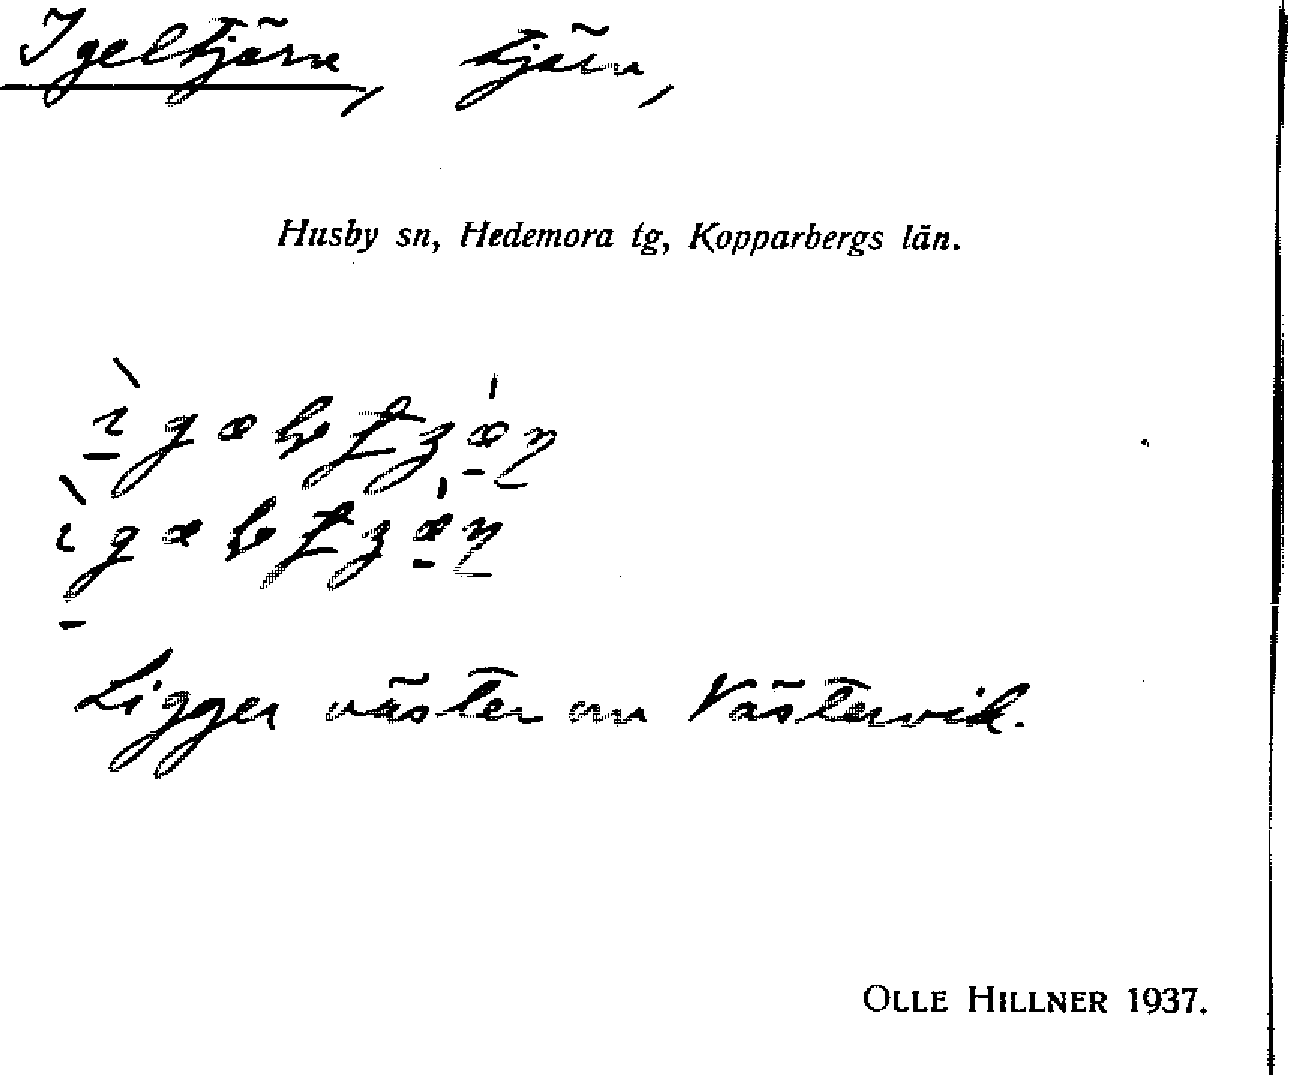 Igeltjärn, tjärn,
Husby sn, Hedemora tg, Kopparbergs län.
Ligger väster om Västervik.
OLLE HILLNER 1937.